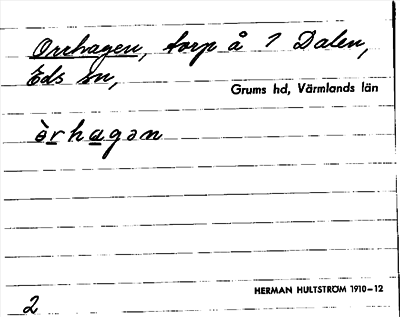 Orrhagen, torp å 7 Dalen,
Eds sn,
Grums hd, Värmlands län
òrhagən
HERMAN HULTSTRÖM 1910–12
2